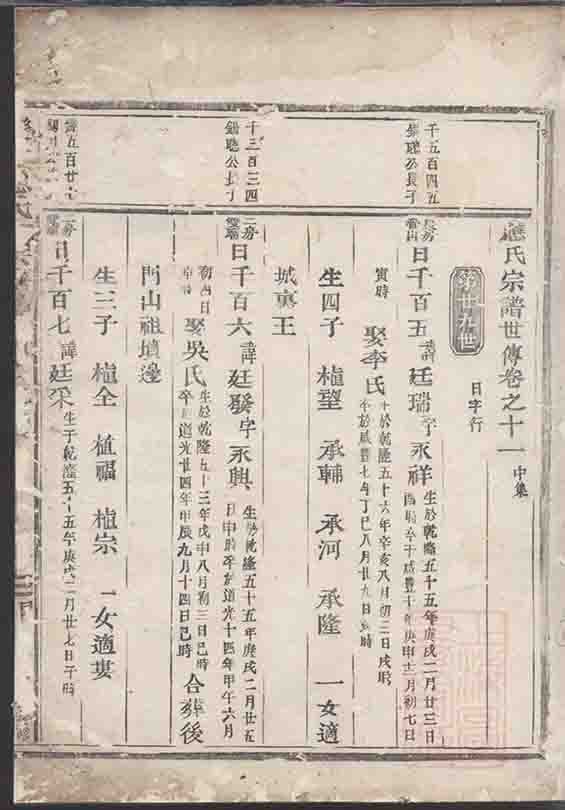 氏宗譜世傳卷之十一 中集
第廿九世
日字行
千五百四五
公長子
二房
日千百五 諱廷瑞字永祥 生於乾隆五十五年庚戌二月廿三日
酉時卒于咸豐十年庚申十二月初七日
寅時 娶李氏 生於乾隆五十六年辛亥八月初三日戌時
卒於咸豐七年丁巳八月廿九日 時
生四子 植望 承輔 承河 承隆 一女適
城東王
十三百三四
公長子
二房
日千百六 諱廷發字永興 生於乾隆五十五年庚戌二月廿五
日申時卒於道光十四年甲午六月
初四日 娶吳氏 生於乾隆五十三年戊申八月初三日巳時
卒於道光廿四年甲辰九月十四日巳時 合葬後
門山祖墳邊
生三子 植全 植福 植宗 一女適婁
五百廿
二房
日千百七 諱廷采 生于乾隆五十五年庚戌二月廿七日子時